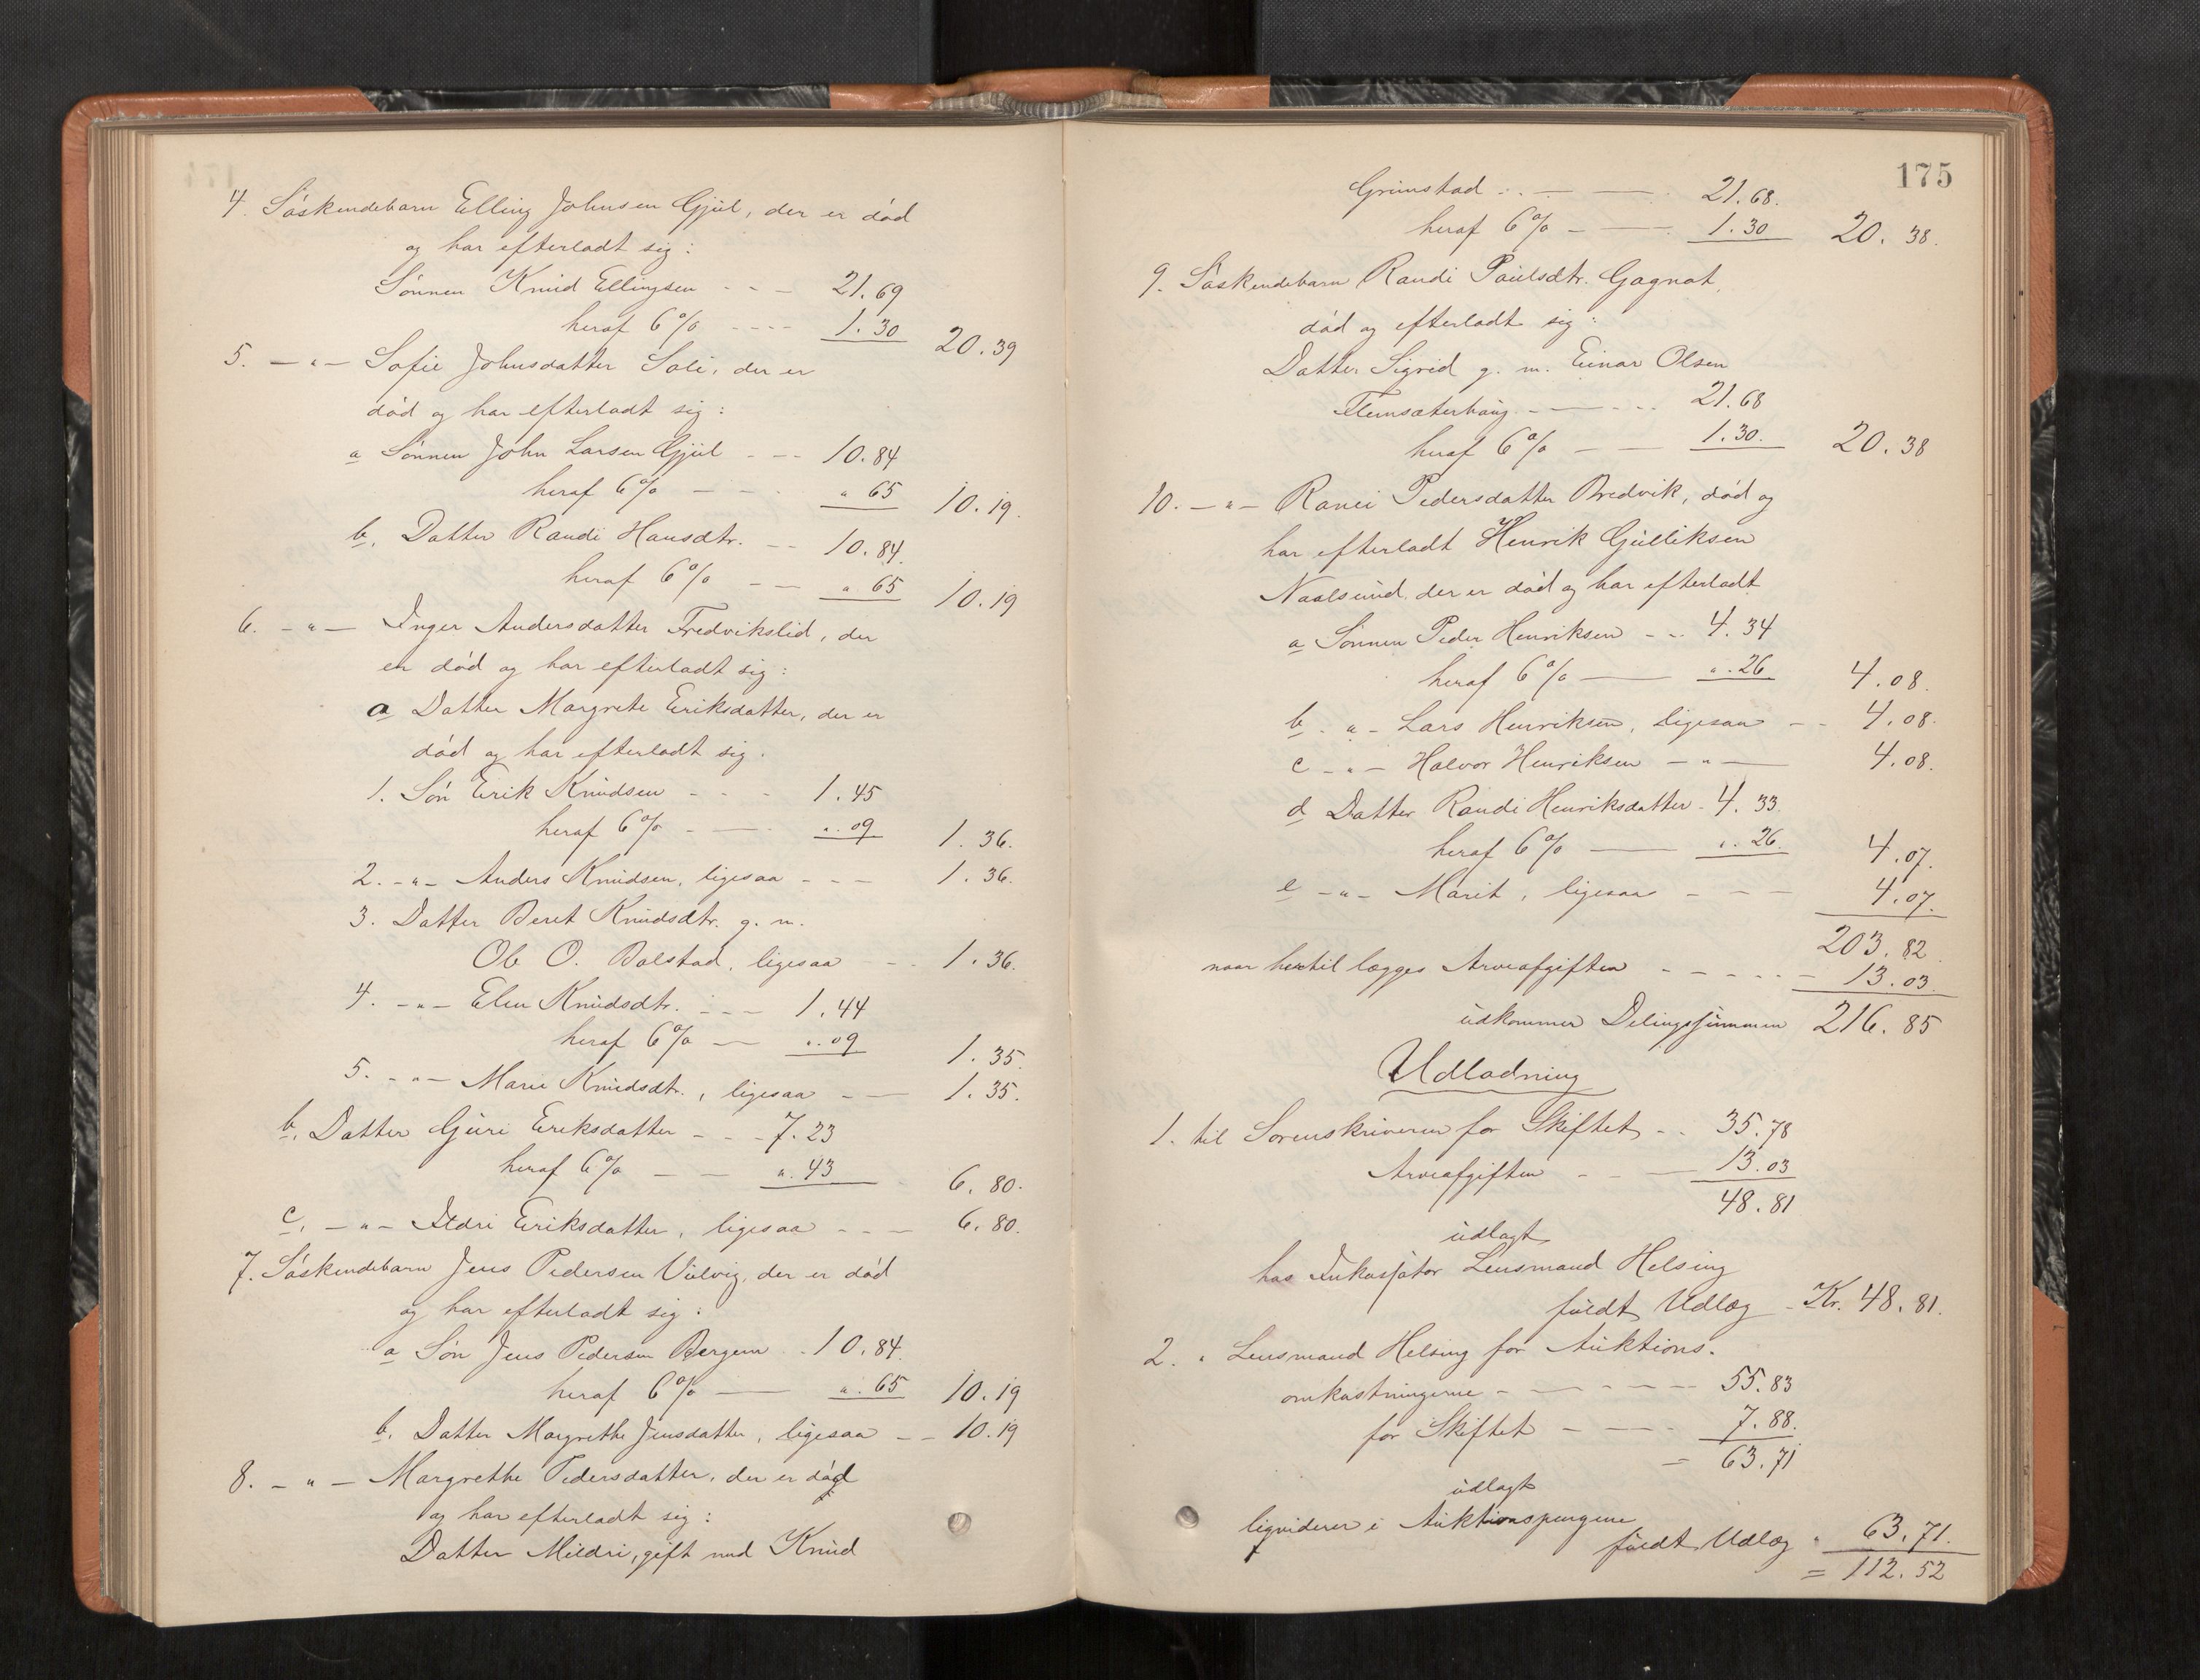 4. Söskendebarn Elling Johnsen Gjül, der er död
og har efterladt sig:
Sönnen Knud Ellingsen - - - 21.69
heraf 6% - - - - 1.30 20.39
5. - " - Sofie Johnsdatter Soli, der er
död og har efterladt sig:
a Sönnen John Larsen Gjül - - - 10.84
heraf 6% - - - " 65 10.19.
b. Datter Randi Hansdtr. - - 10.84.
heraf 6% - - " 65 10.19
6. - " - Inger Andersdatter Fredvikslid, der
er död og har efterladt sig:
a Datter Margrete Eriksdatter, der er
död og har efterladt sig.
1. Sön Erik Knudsen - - - 1.45
heraf 6% - - ".09 1.36.
2. - " - Anders Knudsen, ligesaa - - - 1.36.
3. Datter Beret Knudsdtr. g. m.
Ole O. Bolstad, ligesaa - - 1.36.
4. - " - Elen Knudsdtr. - - - 1.44
heraf 6% - ".09 1.35.
5. - " - Marie Knudsdtr., ligesaa - - 1.35.
b. Datter Guri Eriksdatter - - - 7.23
heraf 6% - - ".43 6.80.
c. - " - Ildri Eriksdatter, ligesaa - - - 6.80.
7. Söskendebarn Jens Pedersen Vülvig, der er död
og har efterladt sig:
a Sön Jens Pedersen Bergem - 10.84.
heraf 6% - ".65 10.19
b. Datter Margrethe Jensdatter, ligesaa - - 10.19
8. - " - Margrethe Pedersdatter, der er död
og har efterladt sig:
Datter Mildri, gift med Knud
175
Grimstad - - - 21.68.
heraf 6% - - 1.30 20.38.
9. Söskendebarn Randi Paulsdtr. Gagnat,
död og efterladt sig:
Datter Sigrid g. m. Einar Olsen
Flemsæterhaug - - - 21.68
heraf 6% - - 1.30. 20.38
10. - " - Ranei Pedersdatter Bredvik, död og
har efterladt Henrik Gulliksen
Naalsund, der er död og har efterladt
a Sönnen Peder Henriksen - - 4.34
heraf 6% - ".26 4.08.
b - " - Lars Henriksen, ligesaa - - 4.08.
c - " - Halvor Henriksen - " - 4.08.
d Datter Randi Henriksdatter - 4.33
heraf 6% - ".26. 4.07.
e - " - Marit, ligesaa - - - 4.07.
203.82
naar hertil lægges Arveafgiften - - - - - 13.03.
udkommer Delingssummen 216.85
Udlodning
1. til Sorenskriveren for Skiftet - - 35.78
Arveafgiften - - 13.03
48.81
udlagt
hos Inkassator Lensmand Helsing
fuldt Udlæg - Kr. 48.81.
2. " Lensmand Helsing for Auktions-
omkostningerne - - - - - 55.83
for Skiftet - - - - 7.88.
= 63.71
udlagt
liqviderer i Auktionspengene
fuldt Udlæg " 63.71.
= 112.52